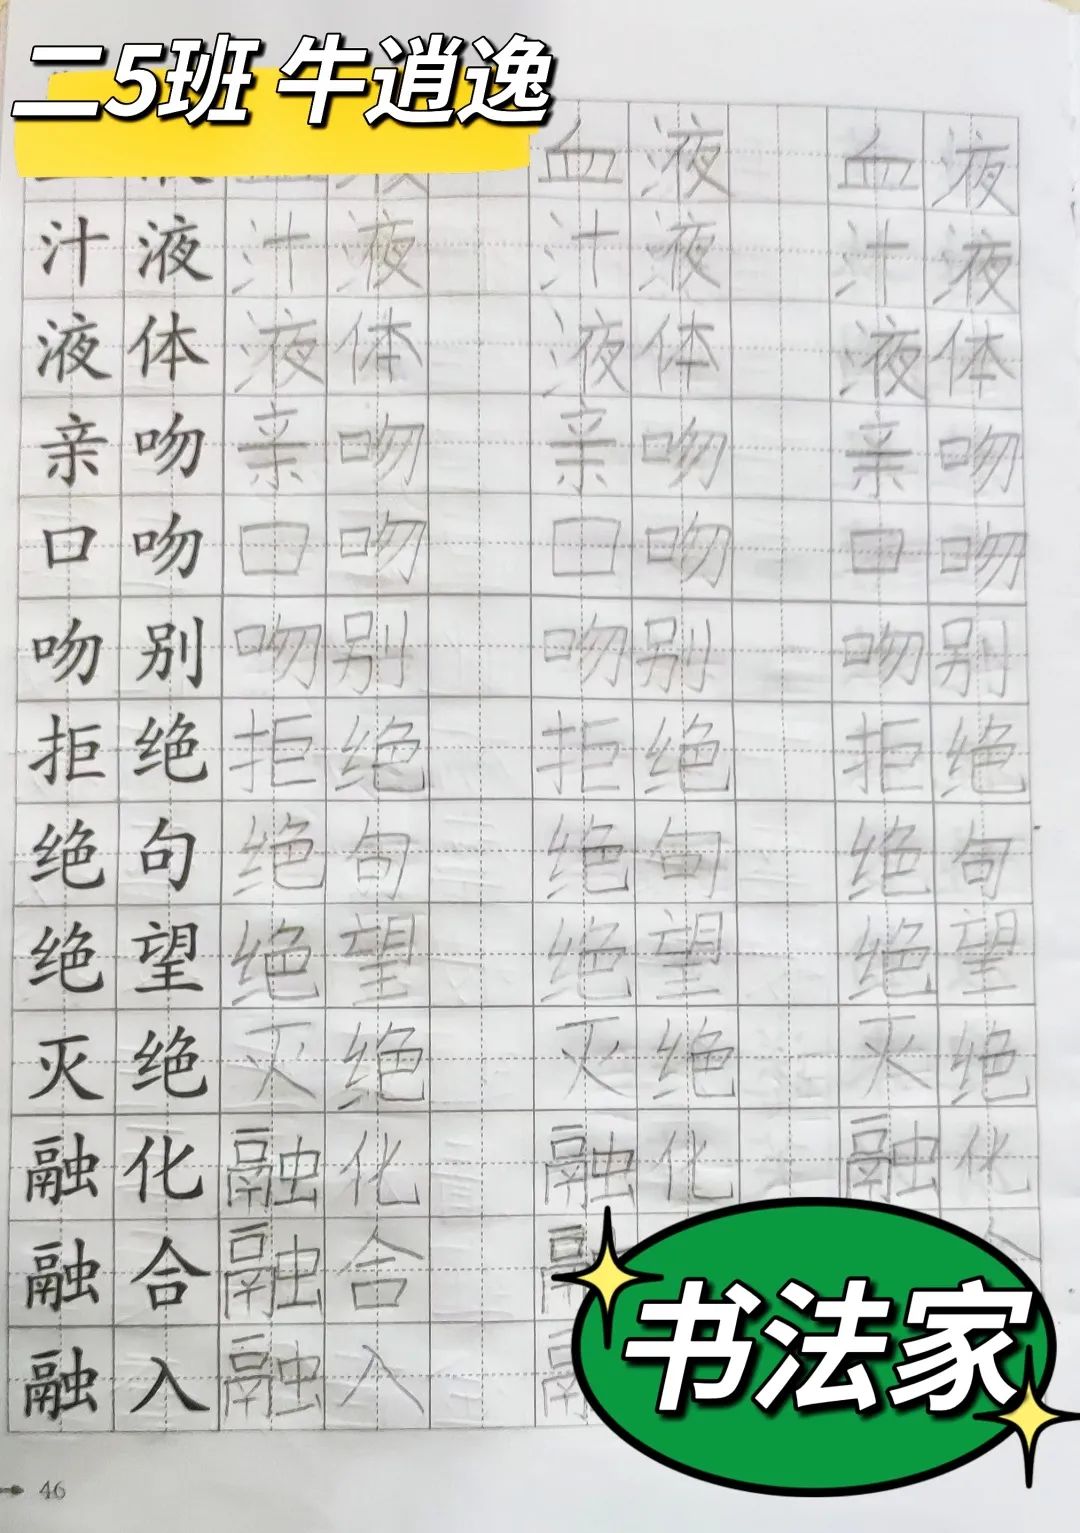 二5班 牛逍逸
血 液 血 液
汁 液 汁 液 汁 液 汁 液
液 体 液 体 液 体 液 体
亲 吻 亲 吻 亲 吻 亲 吻
口 吻 口 吻 口 吻 口 吻
吻 别 吻 别 吻 别 吻 别
拒 绝 拒 绝 拒 绝 拒 绝
绝 句 绝 句 绝 句 绝 句
绝 望 绝 望 绝 望 绝 望
灭 绝 灭 绝 灭 绝 灭 绝
融 化 融 化 融 化 融 化
融 合 融 合
融 入 融 入
书法家
46